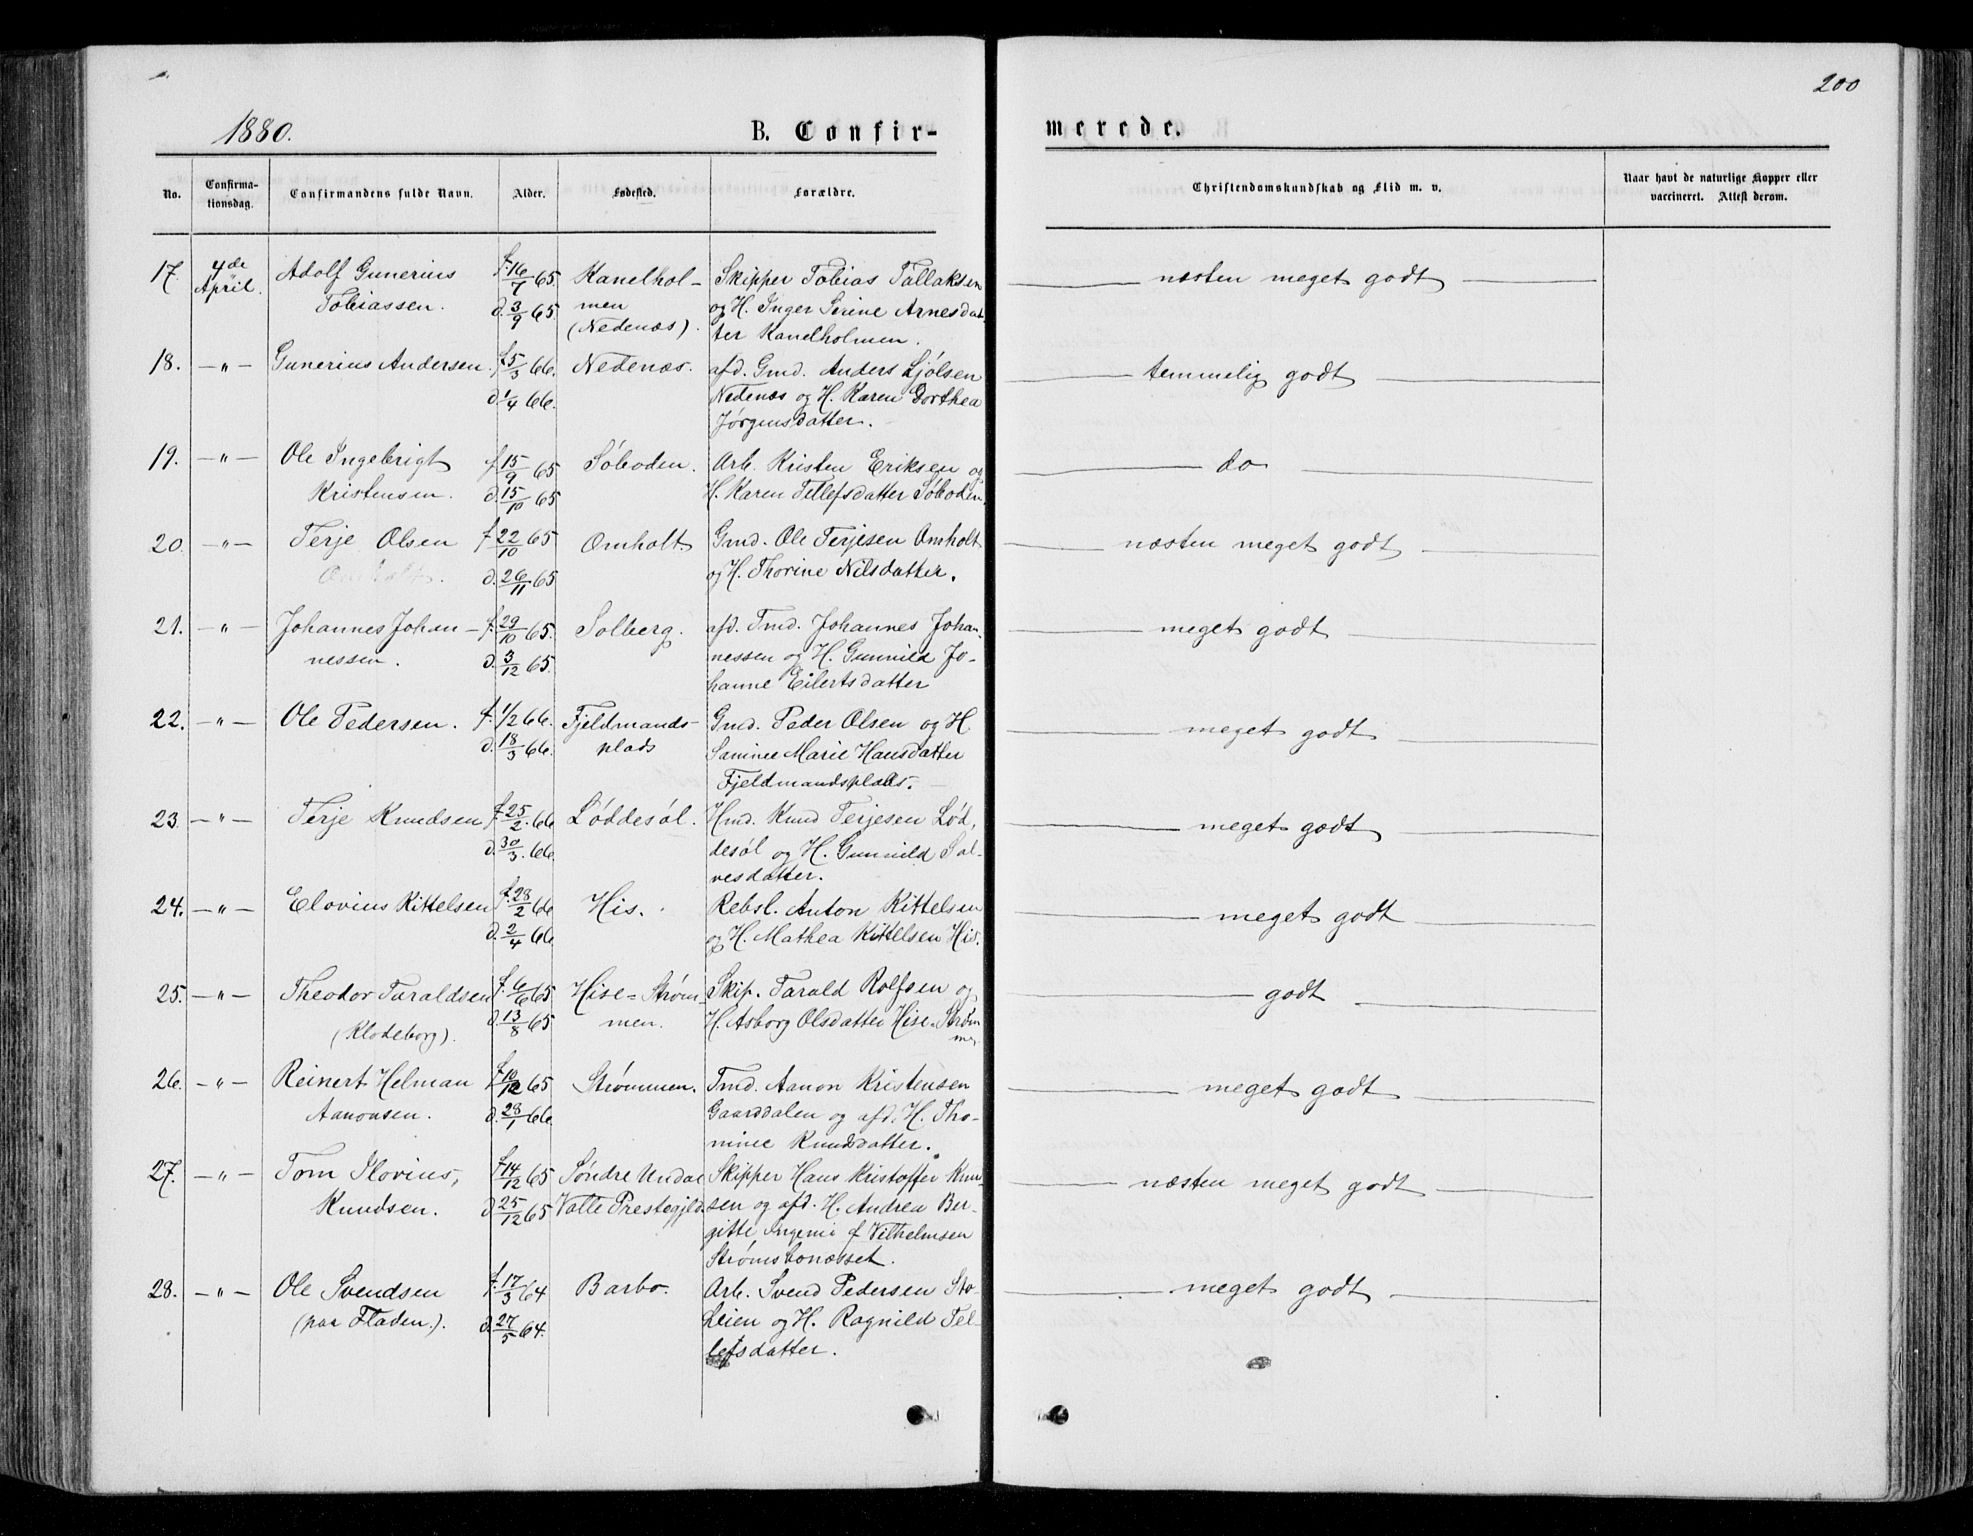 200
1880.
B. Confir-
merede.
No.
Confirma-
tionsdag.
Confirmandens fulde Navn.
Alder.
Fødested.
Forældre.
Christendomskundskab og Flid m. v.
Naar havt de naturlige Kopper eller
vaccineret. Attest derom.
17. 4de April. Adolf Gunerius f. 16/7 65 Kanelhol- Skipper Tobias Tallaksen næsten meget godt
Tobiassen. d. 3/9 65 men og H. Inger Serine Arnesdat-
(Nedenæs). ter Kanelholmen.
18. -"- Gunerius Andersen. f. 5/3 66. Nedenæs. afd. Gmd. Anders Ljølsen temmelig godt
d. 1/4 66. Nedenæs og H. Karen Dorthea
Jørgensdatter.
19. -"- Ole Ingebrigt f. 15/9 65 Søboden. Arb. Kristen Eriksen og do
Kristensen. d. 15/10 65 H. Karen Tellefsdatter Søboden.
20. -"- Terje Olsen f. 22/10 65 Omholt. Gmd. Ole Terjesen Omholt næsten meget godt
Omholt. d. 26/11 65 og H. Thorine Nilsdatter.
21. -"- Johannes Johan- f. 29/10 65. Solberg. afd. Tmd. Johannes Johan- meget godt
nessen. d. 3/12 65. nessen og H. Gunnild Jo-
hanne Eilertsdatter
22. -"- Ole Pedersen. f. 1/2 66. Fjeldmands- Gmd. Peder Olsen og H. meget godt
d. 18/3 66. plads Marie Hansdatter
Fjeldmandsplads.
23. -"- Terje Knudsen f. 25/2. 66 Løddesøl. Hmd. Knud Terjesen Lød- meget godt
d. 30/3. 66. desøl og H. Gunnild Sal-
vesdatter.
24. -"- Elovius Kittelsen f. 28/2 66 His. Rebsl. Anton Kittelsen meget godt
d. 2/4 66 og H. Mathea Kittelsen His.
25. -"- Theodor Taraldsen f. 6/6 65 Hise=Strøm- Skip. Tarald Rolfsen og godt
(Klodeborg). d. 13/8 65 men. H. Asborg Olsdatter Hise-Strøm
men
26. -"- Reinert Helman f. 10/12 65 Strømmen. Tmd. Aanon Kristensen meget godt
Aanonsen. d. 28/1 66 Gaarddalen og afd. H. Tho-
mine Knudsdatter.
27. -"- Tom Ilovius, f. 14/12 65 Søndre Undal Skipper Hans Kristoffer Knud- næsten meget godt
Knudsen. d. 25/12 65 Valle Prestegjeld sen og afd. H. Andrea Ber-
gitte f Vilhelmsen
Strømsbonæsset.
28. -"- Ole Svendsen f. 17/3 64 Barbo. Arb. Svend Pedersen Sto- meget godt
(paa Fladen.). d. 27/5 64. Leien og H. Ragnild Tel-
lefsdatter.